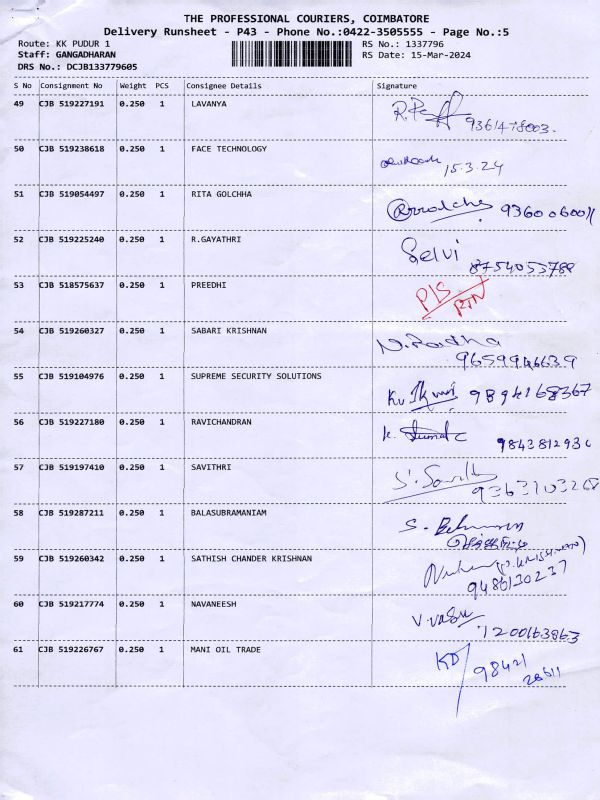 THE PROFESSIONAL COURIERS, COIMBATORE
Delivery Runsheet - P43 - Phone No.:0422-3505555 - Page No.:5
Route: KK PUDUR 1 RS No.: 1337796
Staff: GANGADHARAN RS Date: 15-Mar-2024
DRS No.: DCJB133779605
S No Consignment No Weight PCS Consignee Details Signature
49 CJB 519227191 0.250 1 LAVANYA
50 CJB 519238618 0.250 1 FACE TECHNOLOGY 15.3.24
51 CJB 519054497 0.250 1 RITA GOLCHHA
52 CJB 519225240 0.250 1 R.GAYATHRI Selvi
8754055788
53 CJB 518575637 1 PREEDHI P/S
RTN
54 CJB 519260327 0.250 1 SABARI KRISHNAN N. Radha
96599946639
55 CJB 519104976 0.250 1 SUPREME SECURITY SOLUTIONS 9894168367
56 CJB 519227180 0.250 1 RAVICHANDRAN
57 CJB 519197410 0.250 1 SAVITHRI
58 CJB 519287211 0.250 1 BALASUBRAMANIAM
59 CJB 519260342 0.250 1 SATHISH CHANDER KRISHNAN
9486130237
60 CJB 519217774 0.250 1 NAVANEESH V. Vasu
61 CJB 519226767 0.250 1 MANI OIL TRADE KD
98421